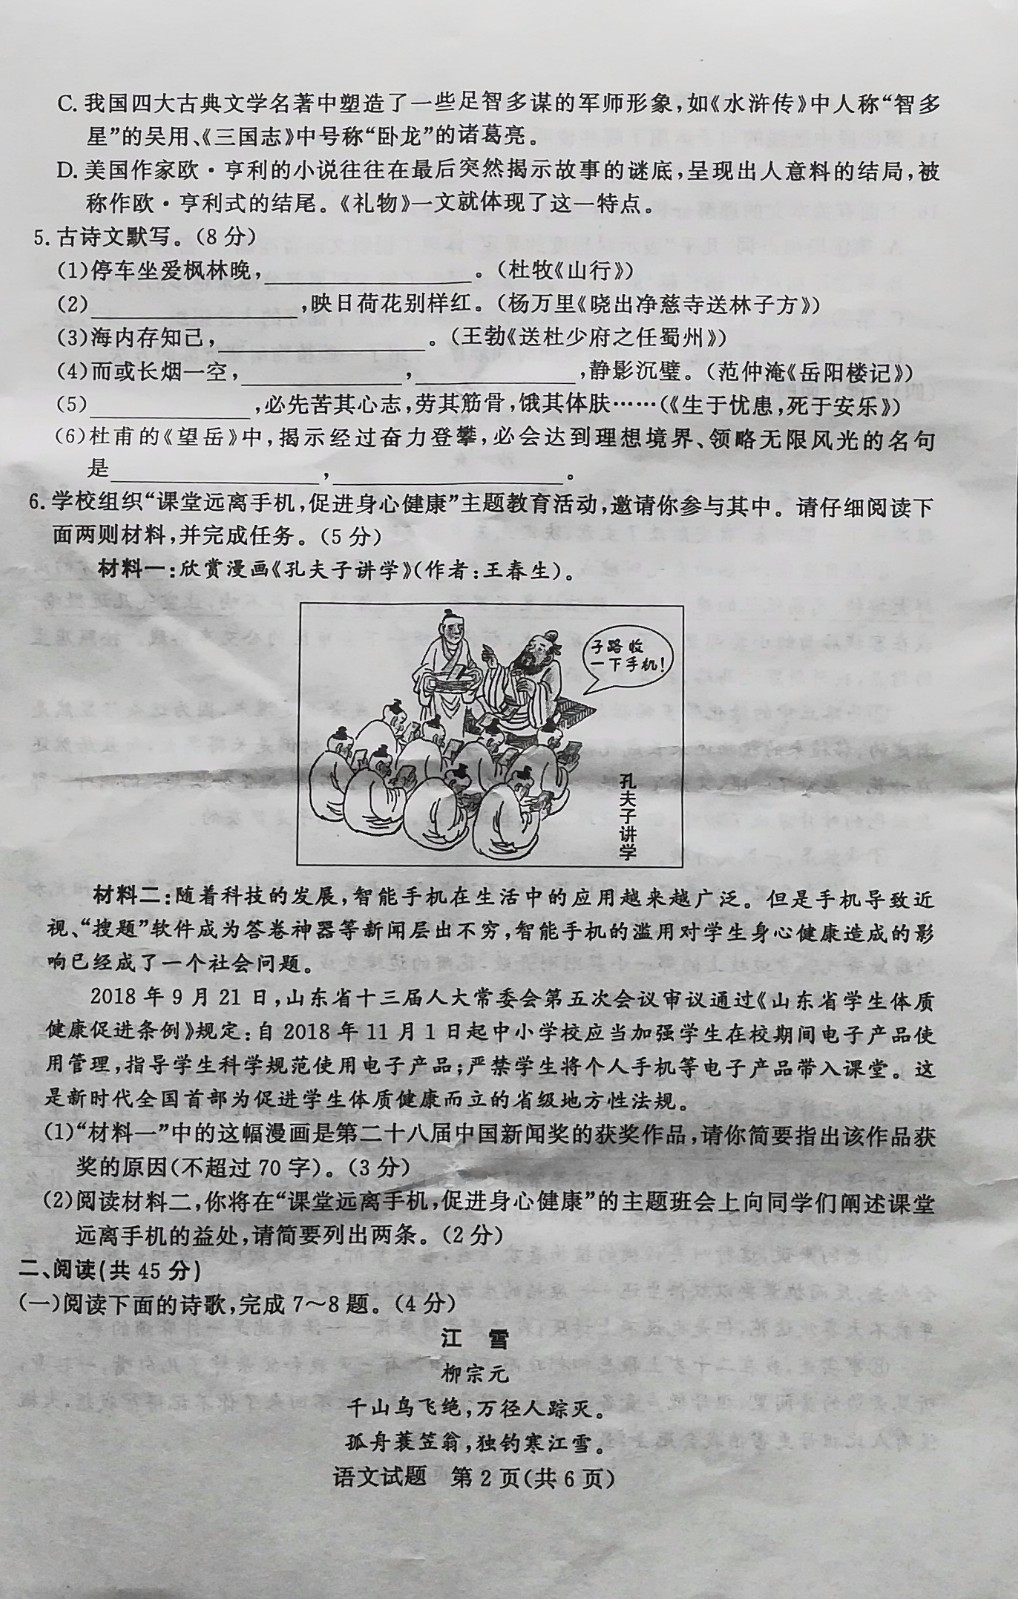 C. 我国四大古典文学名著中塑造了一些足智多谋的军师形象,如《水浒传》中人称“智多
星”的吴用、《三国志》中号称“卧龙”的诸葛亮。
D. 美国作家欧·亨利的小说往往在最后突然揭示故事的谜底,呈现出人意料的结局,被
称作欧·亨利式的结尾。《礼物》一文就体现了这一特点。
5. 古诗文默写。(8 分)
(1)停车坐爱枫林晚,____________。(杜牧《山行》)
(2)____________,映日荷花别样红。(杨万里《晓出净慈寺送林子方》)
(3)海内存知己,____________。(王勃《送杜少府之任蜀州》)
(4)而或长烟一空,____________,____________,静影沉璧。(范仲淹《岳阳楼记》)
(5)____________,必先苦其心志,劳其筋骨,饿其体肤……(《生于忧患,死于安乐》)
(6)杜甫的《望岳》中,揭示经过奋力登攀,必会达到理想境界、领略无限风光的名句
是____________,____________。
6. 学校组织“课堂远离手机,促进身心健康”主题教育活动,邀请你参与其中。请仔细阅读下
面两则材料,并完成任务。(5 分)
材料一:欣赏漫画《孔夫子讲学》(作者:王春生)。
子路收
一下手机!
孔夫子讲学
材料二:随着科技的发展,智能手机在生活中的应用越来越广泛。但是手机导致近
视、“搜题”软件成为答卷神器等新闻层出不穷,智能手机的滥用对学生身心健康造成的影
响已经成了一个社会问题。
2018 年 9 月 21 日,山东省十三届人大常委会第五次会议审议通过《山东省学生体质
健康促进条例》规定:自 2018 年 11 月 1 日起中小学校应当加强学生在校期间电子产品使
用管理,指导学生科学规范使用电子产品;严禁学生将个人手机等电子产品带入课堂。这
是新时代全国首部为促进学生体质健康而立的省级地方性法规。
(1)“材料一”中的这幅漫画是第二十八届中国新闻奖的获奖作品,请你简要指出该作品获
奖的原因(不超过 70 字)。(3 分)
(2)阅读材料二,你将在“课堂远离手机,促进身心健康”的主题班会上向同学们阐述课堂
远离手机的益处,请简要列出两条。(2 分)
二、阅读(共 45 分)
(一)阅读下面的诗歌,完成 7~8 题。(4 分)
江 雪
柳宗元
千山鸟飞绝,万径人踪灭。
孤舟蓑笠翁,独钓寒江雪。
语文试题 第 2 页(共 6 页)